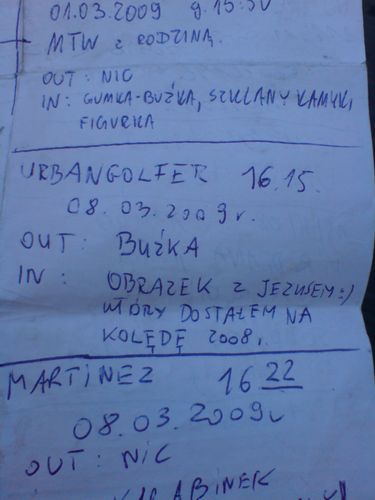 01.03.2009 g. 15:30
MTW z RODZINĄ.
OUT : NIC
IN : GUMKA-BUŹKA, SZKLANY KAMYK,
FIGURKA
URBANGOLFER 16.15.
08. 03. 2009r.
OUT : BUŹKA
IN : OBRAZEK z JEZUSEM :)
KTÓRY DOSTAŁEM NA
KOLĘDĘ 2008r.
MARTINEZ 16 22
08.03.2009r
OUT : NIC
KARABINEK